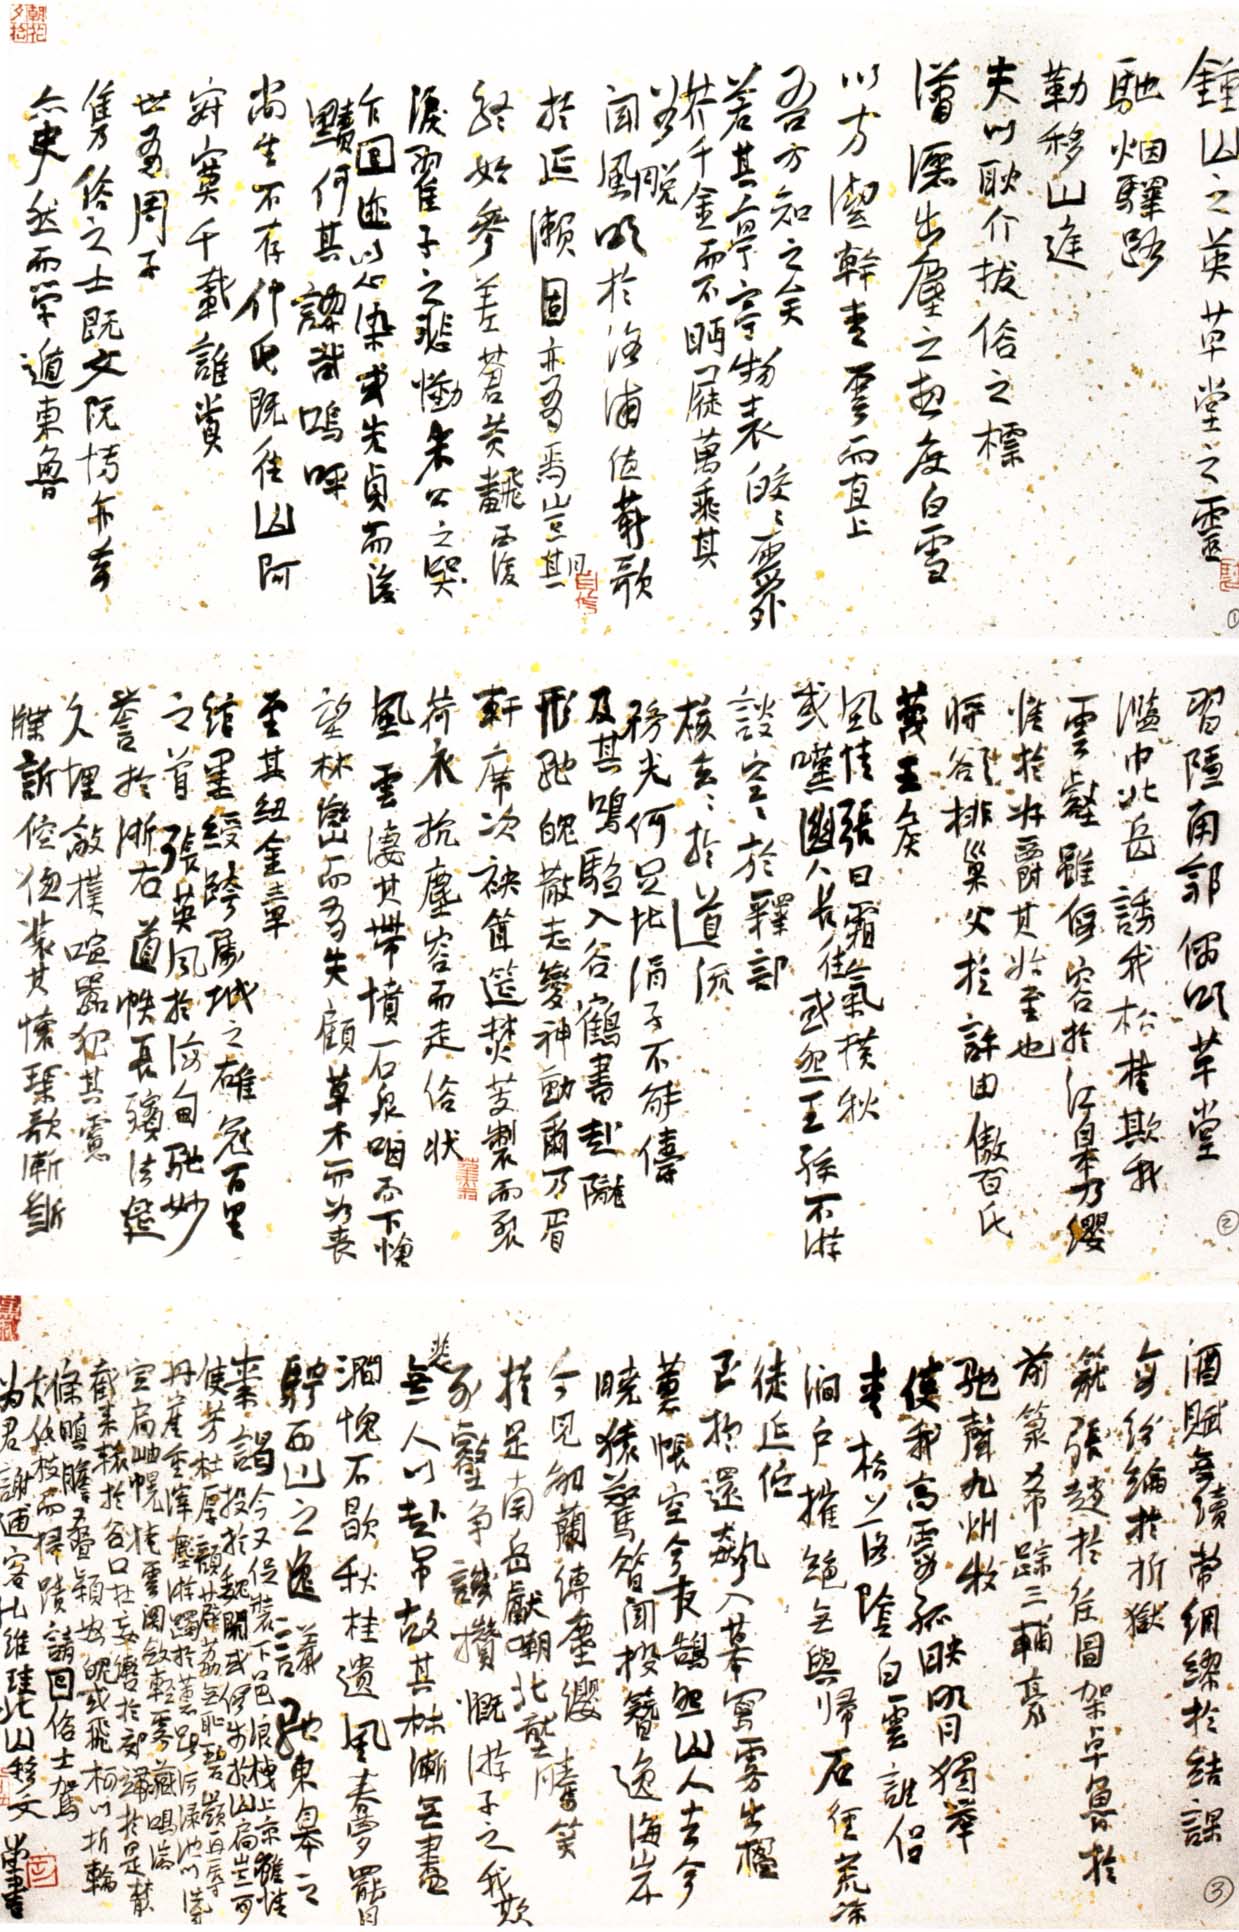 鍾山之英草堂之靈
馳烟驛路
勒移山庭
夫以耿介拔俗之標
瀟灑出塵之想度白雪
以方潔幹青雲而直上
吾方知之矣
若其亭亭物表皎皎霞外
芥千金而不眄屣萬乘其
如脫
聞鳳吹於洛浦值薪歌
於延瀨固亦有焉豈期
終始參差蒼黃翻覆
淚翟子之悲慟朱公之哭
乍回迹以心染或先貞而後
黷何其謬哉嗚呼
尚生不存仲氏既往山阿
寂寞千載誰賞
世有周子
雋乃俗之士既文既博亦玄
亦史然而學遁東魯
習隱南郭偶吹草堂
濫巾北岳誘我松桂欺我
雲壑雖假容於江皋乃纓
情於好爵其始至也
將欲排巢父於許由傲百氏
蔑王侯
風情張日霜氣橫秋
或嘆幽人長往或怨王孫不游
談空空於釋部
核玄玄於道流
務光何足比涓子不能儔
及其鳴騶入谷鶴書赴隴
形馳魄散志變神動爾乃眉
軒席次袂聳筵焚芰製而裂
荷衣抗塵容而走俗狀
風雲凄其帶憤石泉咽而下愴
望林巒而有失顧草木而如喪
至其紐金章
綰墨綬跨屬城之雄冠百里
之首張英風於海甸馳妙
譽於浙右道帙長殯法筵
久埋敲撲喧囂犯其慮
牒訴倥傯裝其懷琴歌漸斷
酒賦無續常綢繆於結課
每紛綸於折獄
籠張趙於往圖架卓魯於
前籙希踪三輔豪
馳聲九州牧
使我高霞孤映明月獨舉
青松落陰白雲誰侶
澗户摧絕無與歸石徑荒凉
徒延佇
至於還飆入幕寫霧出楹
蕙帳空兮夜鵠怨山人去兮
曉猿驚昔聞投簪逸海岸
今見解蘭縛塵纓
於是南岳獻嘲北壟騰笑
列壑爭譏攢慨游子之我欺
悲無人以赴吊故其林慚無盡
澗愧不歇秋桂遺風春蘿罷月
騁西山之逸議馳東皋之
素謁今又促裝下邑浪栧上京雖情
投於魏闕或假步於山扃豈可
使芳杜厚顏薜荔無耻碧嶺再辱
丹崖重滓塵游躅於蕙路污淥池以洗耳
宜扃岫幌掩雲關斂輕霧藏鳴湍
截來轅於谷口杜妄轡於郊端於是叢
條瞋膽叠穎怒魄或飛柯以折輪
乍低枝而掃迹請回俗士駕
为君謝逋客孔稚珪北山移文
①
②
③